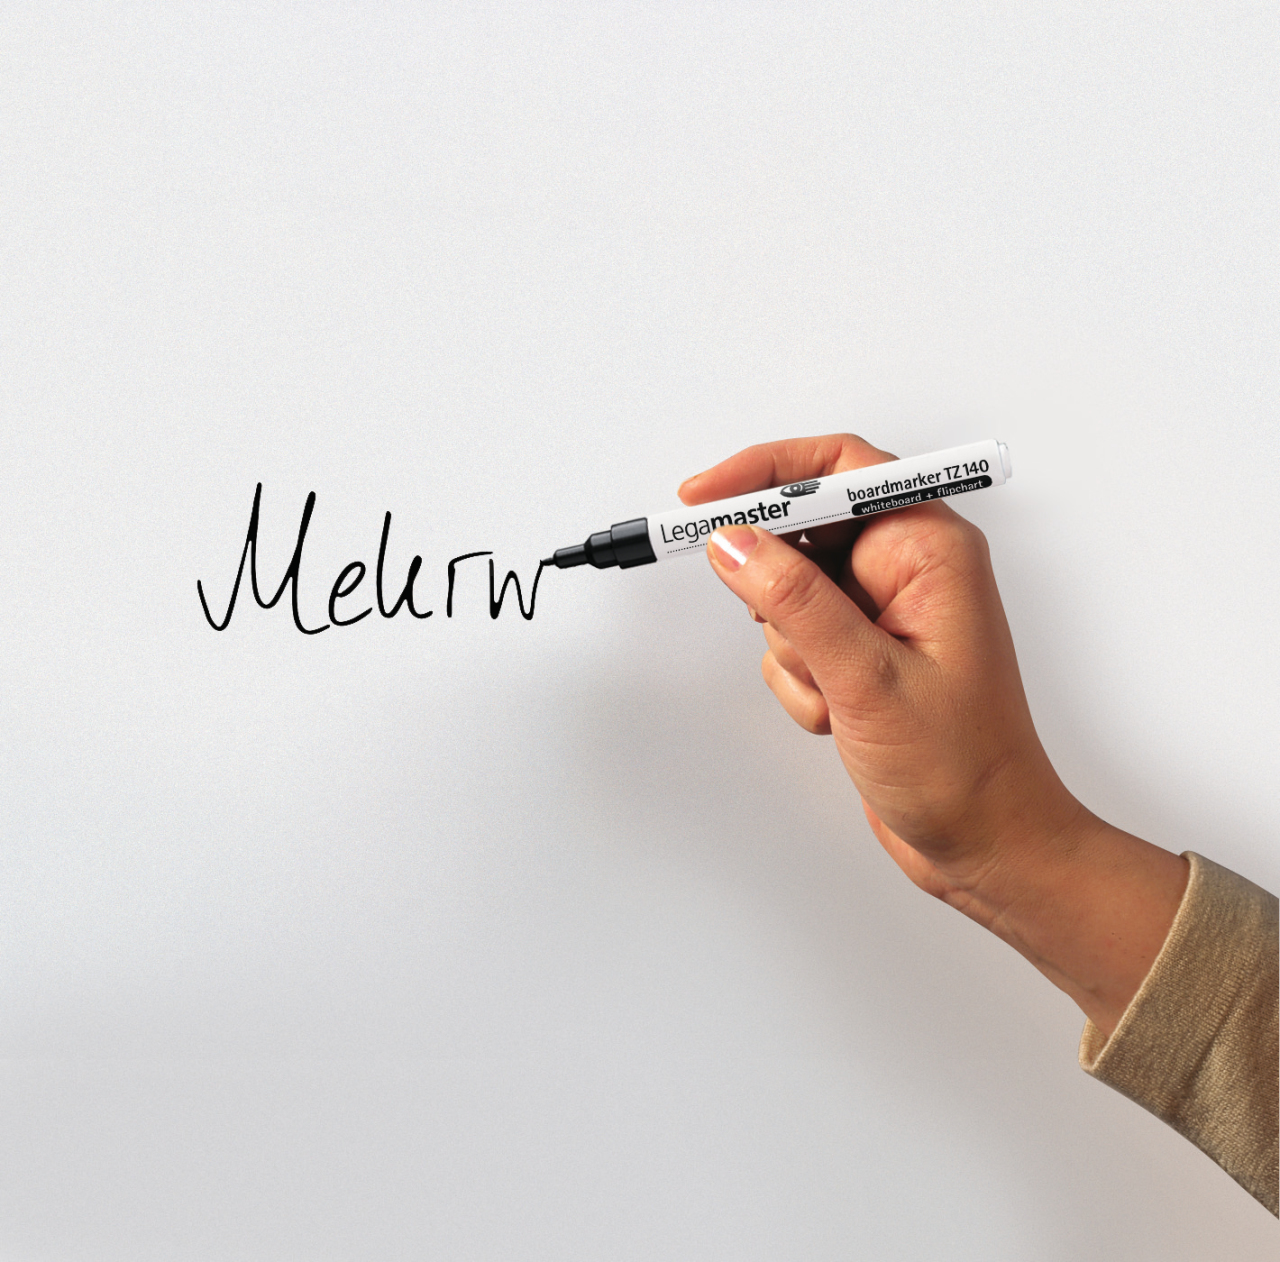 Mehrw
Legamaster
boardmarker TZ 140
whiteboard + flipchart